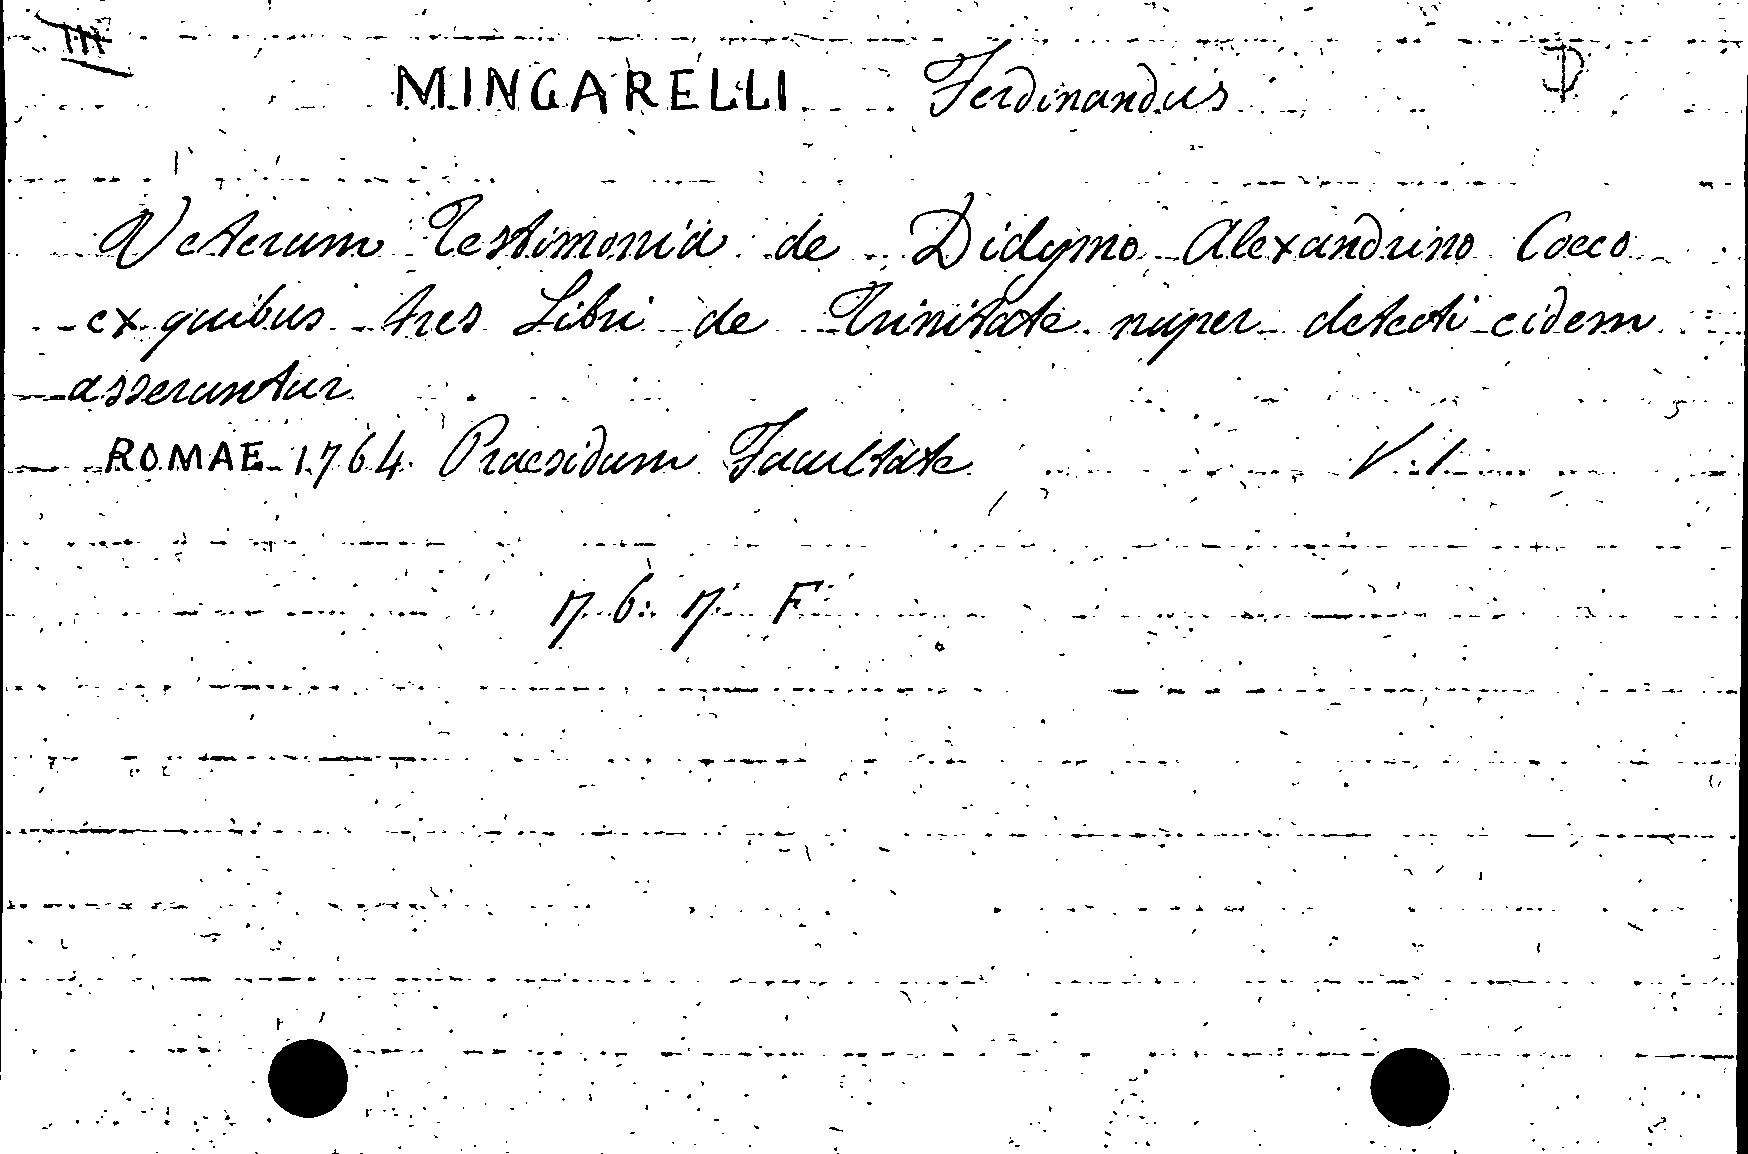 III D
MINGARELLI Ferdinandus
Veterum Testimonia de Didymo Alexandrino Coeco
ex quibus tres Libri de Trinitate nuper detecti eidem
asseruntur
ROMAE 1764 Praesidum Facultate V. 1
17. 6. 17. F